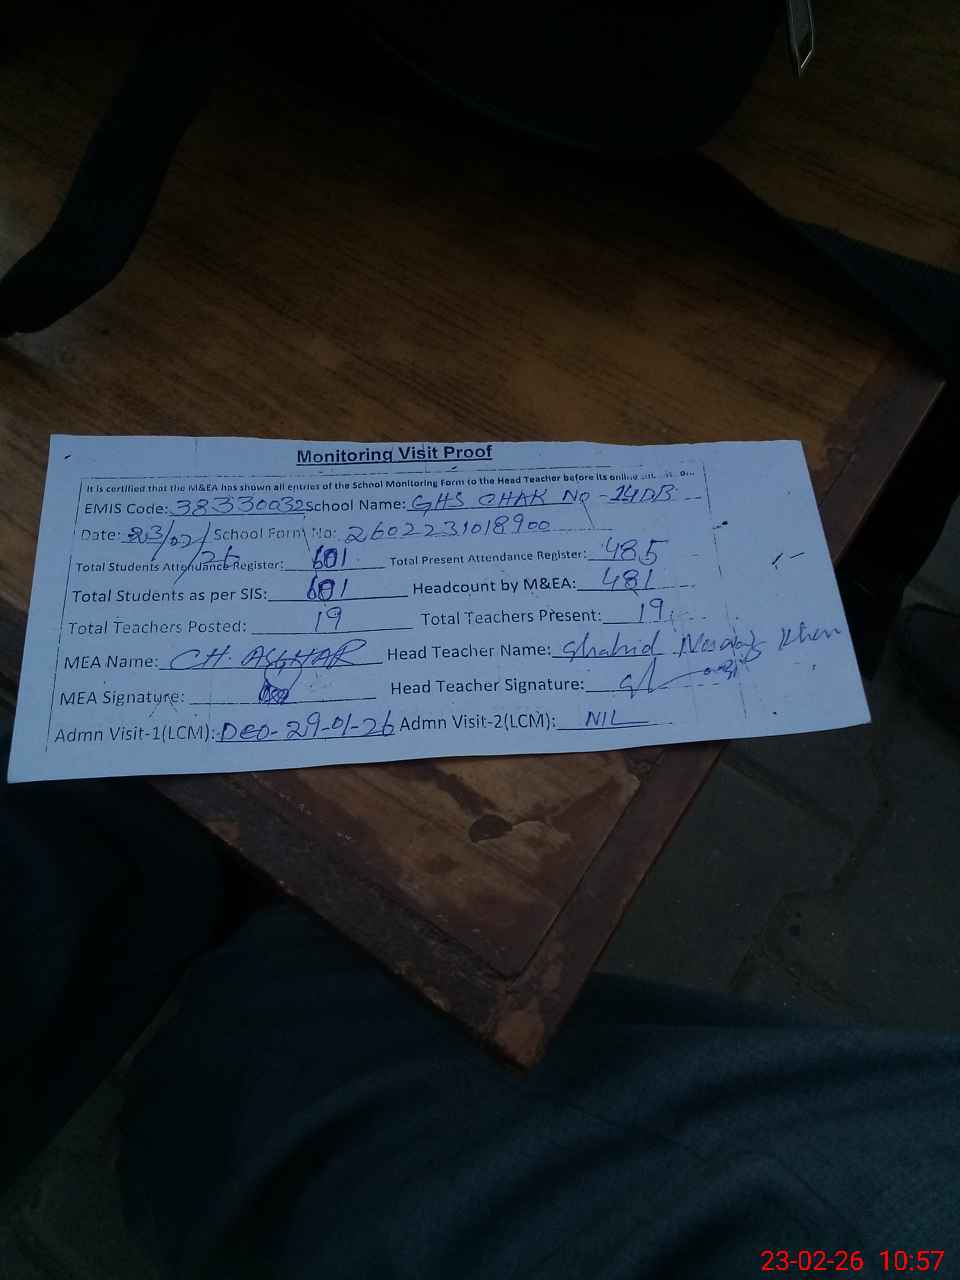 Monitoring Visit Proof
It is certified that the M&EA has shown all entries of the School Monitoring Form to the Head Teacher before its online
EMIS Code: 38330032 School Name: GHS CHAK No - 14DB
Date: 23/02/26 School Form No: 2602231018900
Total Students Attendance Register: 601 Total Present Attendance Register: 485
Total Students as per SIS: 601 Headcount by M&EA: 481
Total Teachers Posted: 19 Total Teachers Present: 19
MEA Name: CH. ASGHAR Head Teacher Name: Shahid Nawaz Khan
MEA Signature: Head Teacher Signature:
Admn Visit-1(LCM): DEO- 29-01-26 Admn Visit-2(LCM): NIL
23-02-26 10:57